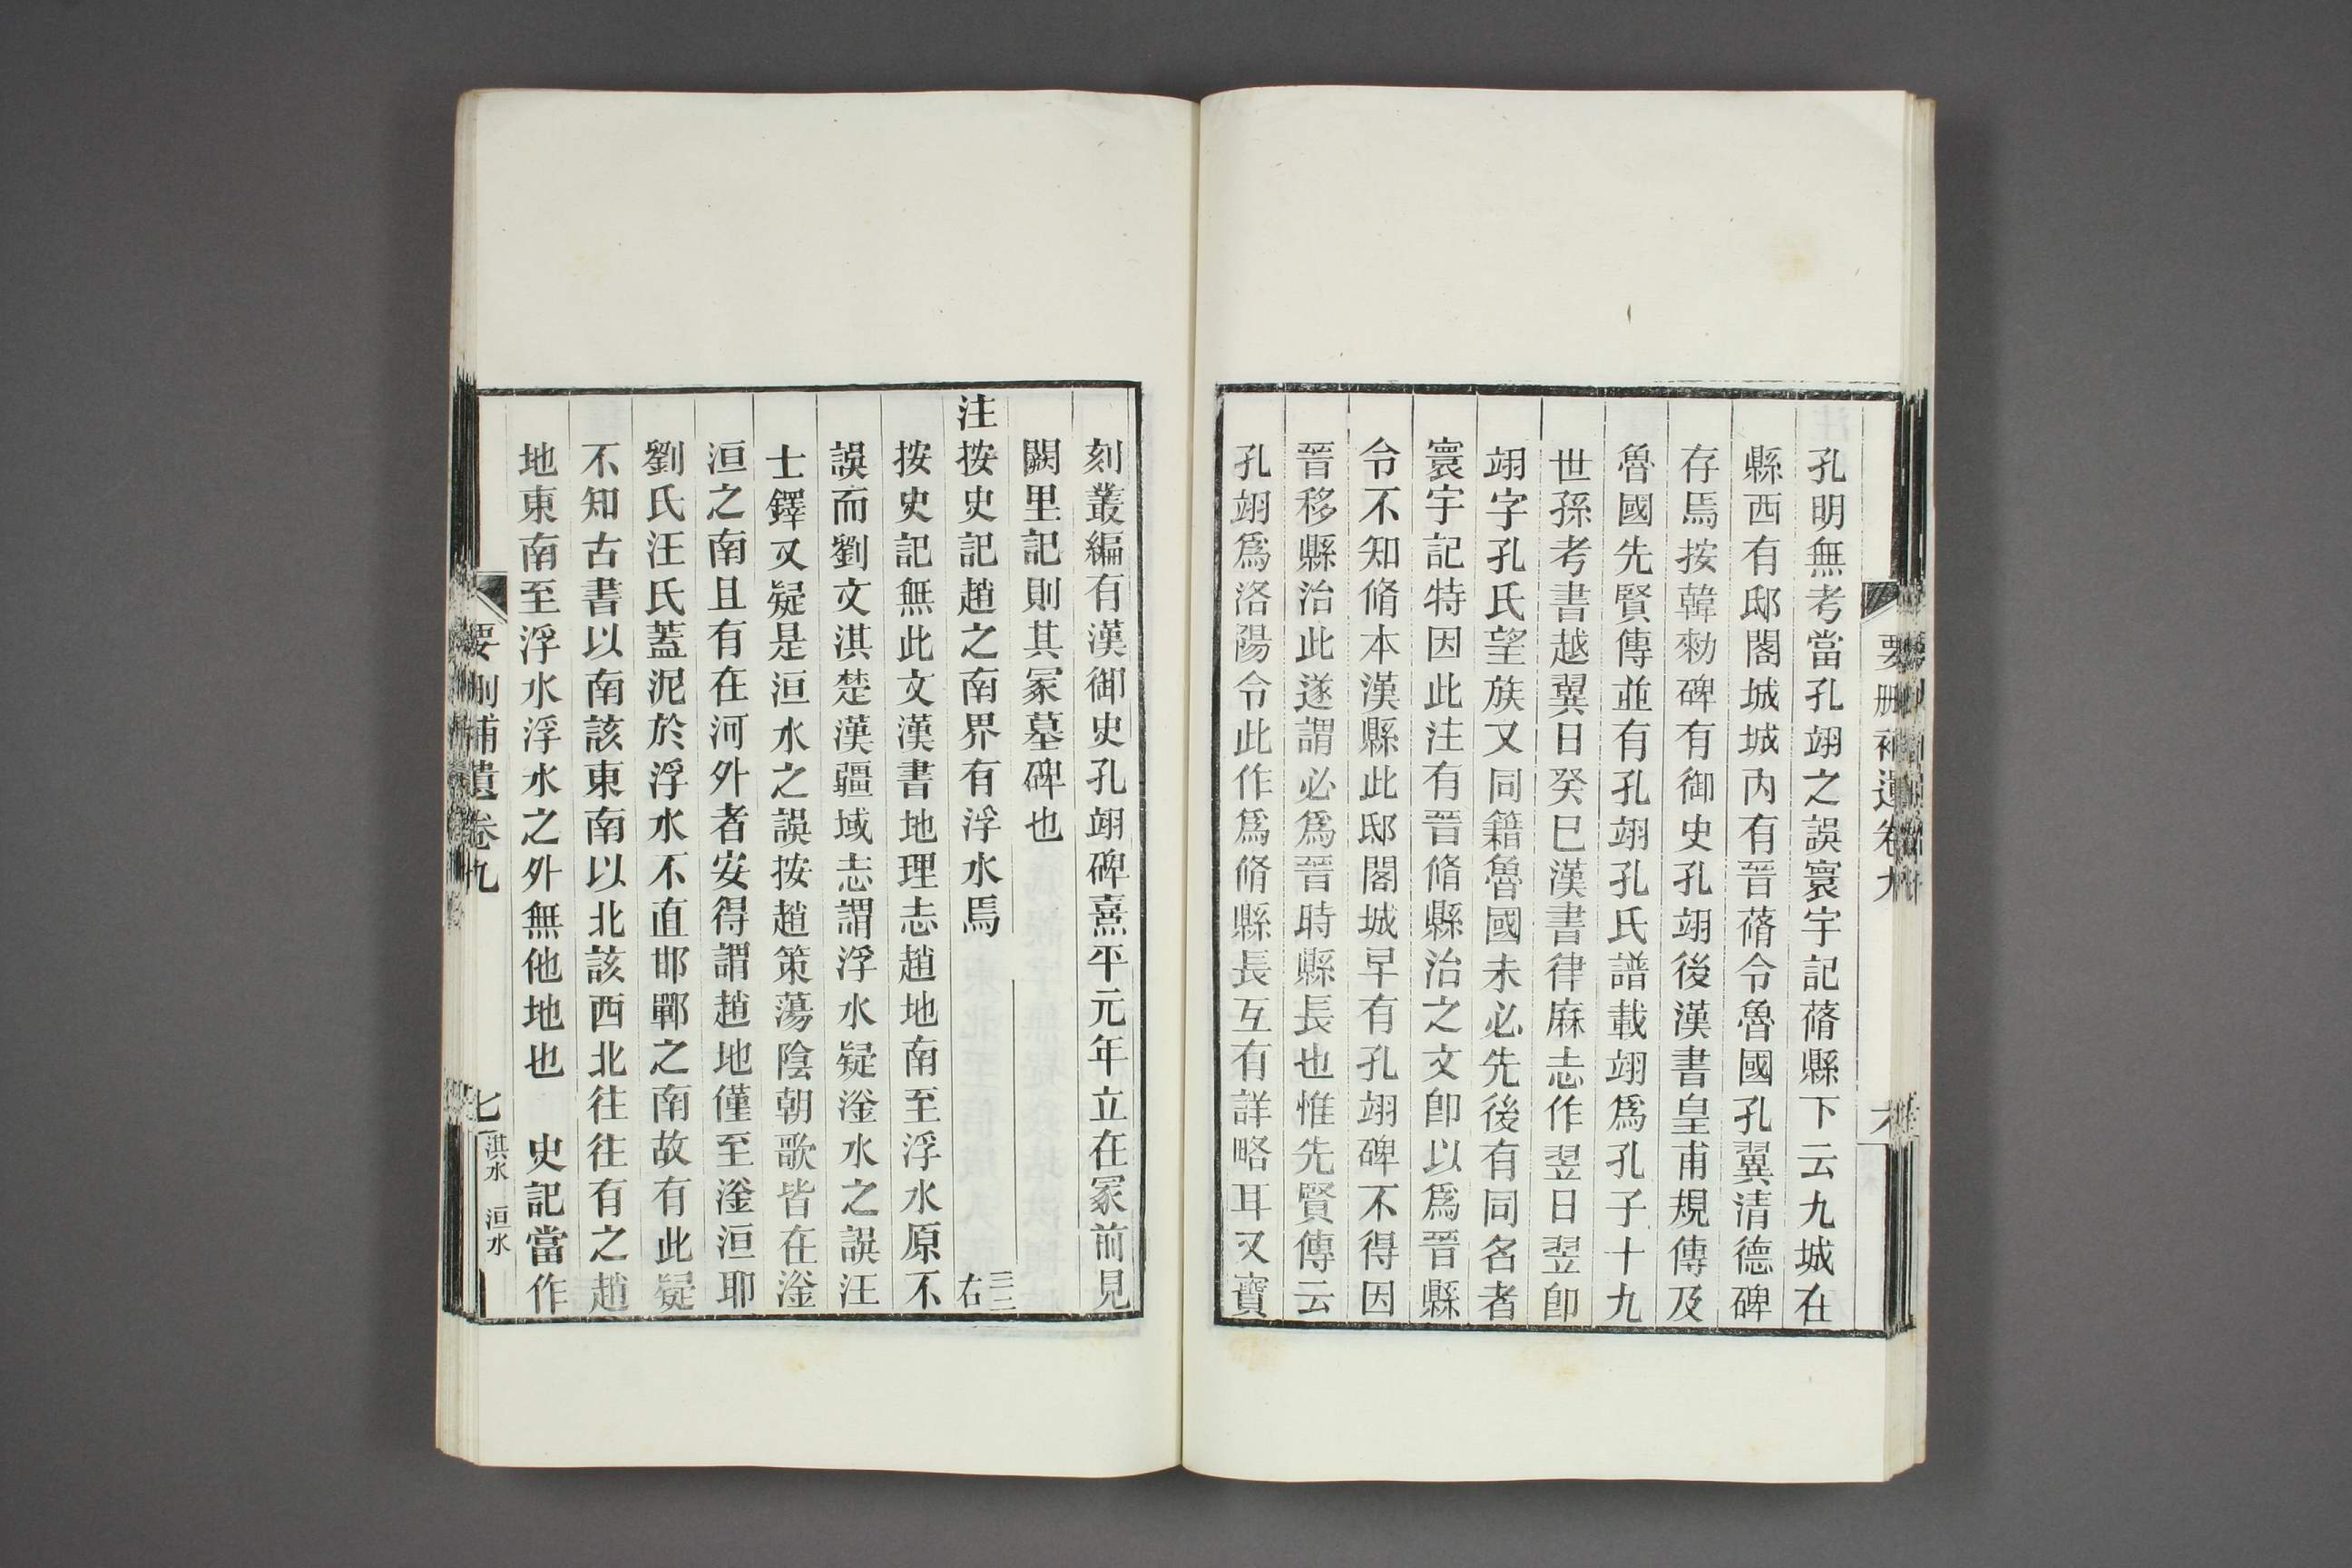 要刪補遺卷九
孔明無考當孔翊之誤寰宇記蓨縣下云九城在
縣西有邸閣城城內有晉蓨令魯國孔翼清德碑
存焉按韓勑碑有御史孔翊後漢書皇甫規傳及
魯國先賢傳並有孔翊孔氏譜載翊爲孔子十九
世孫考書越翼日癸巳漢書律麻志作翌日翌卽
翊字孔氏望族又同籍魯國未必先後有同名者
寰宇記特因此注有晉脩縣治之文卽以爲晉縣
令不知脩本漢縣此邸閣城早有孔翊碑不得因
晉移縣治此遂謂必爲晉時縣長也惟先賢傳云
孔翊爲洛陽令此作爲脩縣長互有詳略耳又寶
刻叢編有漢御史孔翊碑熹平元年立在冢前見
闕里記則其冢墓碑也
注按史記趙之南界有浮水焉 三三右
按史記無此文漢書地理志趙地南至浮水原不
誤而劉文淇楚漢疆域志謂浮水疑滏水之誤汪
士鐸又疑是洹水之誤按趙策蕩陰朝歌皆在滏
洹之南且有在河外者安得謂趙地僅至滏洹耶
劉氏汪氏蓋泥於浮水不直邯鄲之南故有此疑
不知古書以南該東南以北該西北往往有之趙
地東南至浮水浮水之外無他地也 史記當作
要刪補遺卷九 七 淇水 洹水